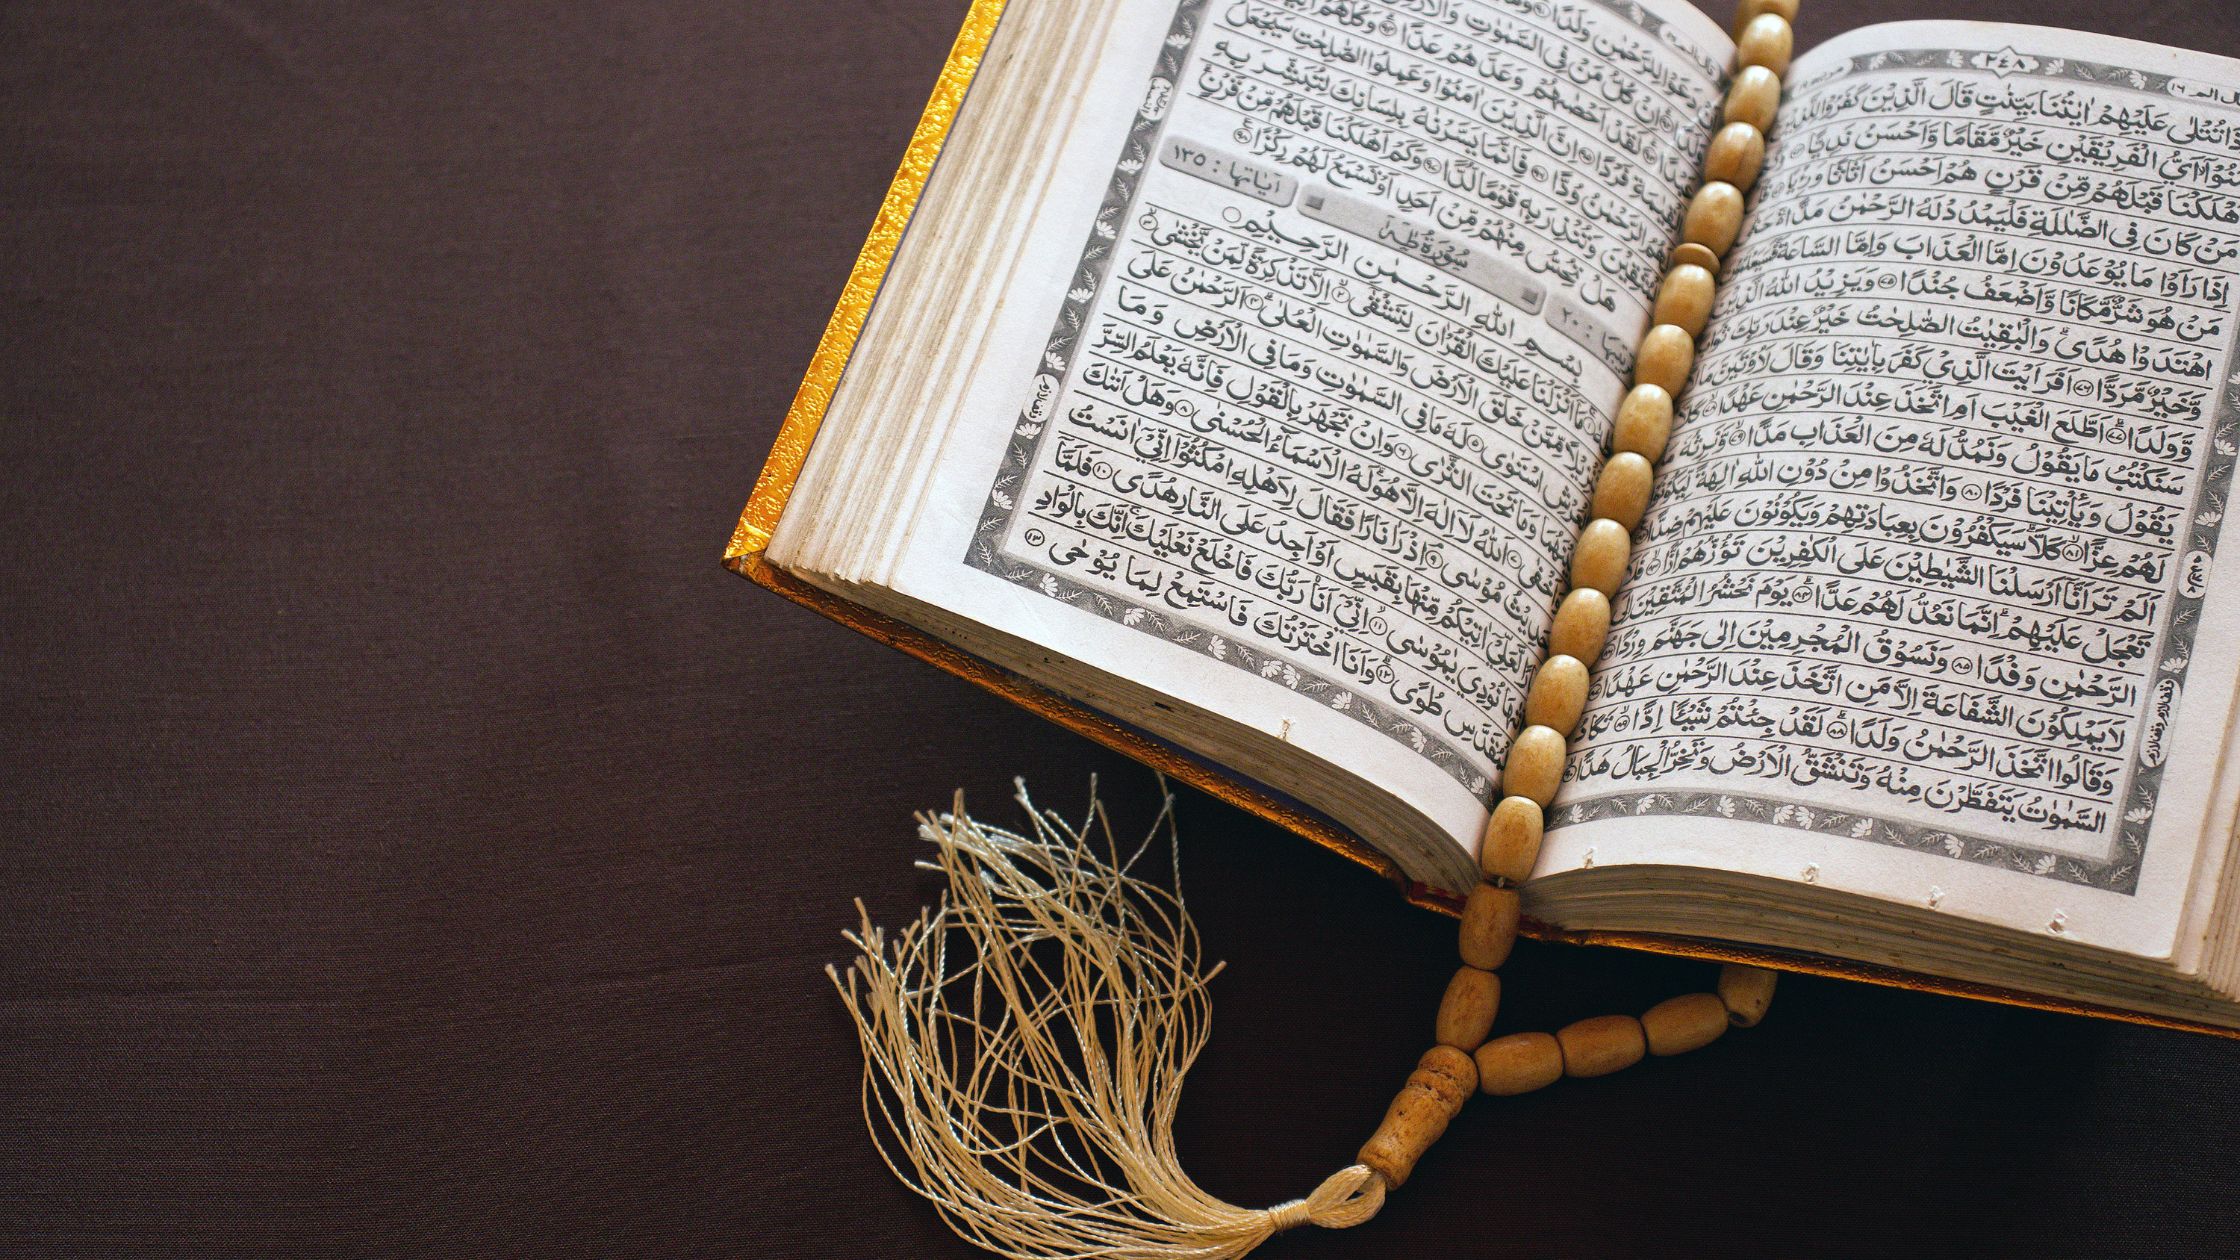 ٢٤٨
عَلَيْهِمْ اٰيٰتُنَا بَيِّنٰتٍ قَالَ الَّذِيْنَ كَفَرُوْا لِلَّذِيْنَ
الْفَرِيْقَيْنِ خَيْرٌ مَّقَامًا وَّاَحْسَنُ نَدِيًّا
اَهْلَكْنَا قَبْلَهُمْ مِّنْ قَرْنٍ هُمْ اَحْسَنُ اَثَاثًا وَّرِءْيًا
مَنْ كَانَ فِى الضَّلٰلَةِ فَلْيَمْدُدْ لَهُ الرَّحْمٰنُ مَدًّا
اِذَا رَاَوْا مَا يُوْعَدُوْنَ اِمَّا الْعَذَابَ وَاِمَّا السَّاعَةَ
مَنْ هُوَ شَرٌّ مَّكَانًا وَّاَضْعَفُ جُنْدًا ۝٧٥ وَيَزِيْدُ اللّٰهُ الَّذِيْنَ
اهْتَدَوْا هُدًى وَالْبٰقِيٰتُ الصّٰلِحٰتُ خَيْرٌ عِنْدَ رَبِّكَ
وَّخَيْرٌ مَّرَدًّا ۝٧٦ اَفَرَءَيْتَ الَّذِيْ كَفَرَ بِاٰيٰتِنَا وَقَالَ لَاُوْتَيَنَّ مَا
وَّوَلَدًا ۝٧٧ اَطَّلَعَ الْغَيْبَ اَمِ اتَّخَذَ عِنْدَ الرَّحْمٰنِ عَهْدًا ۝٧٨
سَنَكْتُبُ مَا يَقُوْلُ وَنَمُدُّ لَهٗ مِنَ الْعَذَابِ مَدًّا ۝٧٩ وَّنَرِثُهٗ
يَقُوْلُ وَيَاْتِيْنَا فَرْدًا ۝٨٠ وَاتَّخَذُوْا مِنْ دُوْنِ اللّٰهِ اٰلِهَةً
لَهُمْ عِزًّا ۝٨١ كَلَّا سَيَكْفُرُوْنَ بِعِبَادَتِهِمْ وَيَكُوْنُوْنَ عَلَيْهِمْ ضِدًّا
اَلَمْ تَرَ اَنَّآ اَرْسَلْنَا الشَّيٰطِيْنَ عَلَى الْكٰفِرِيْنَ تَؤُزُّهُمْ اَزًّا ۝٨٣
تَعْجَلْ عَلَيْهِمْ اِنَّمَا نَعُدُّ لَهُمْ عَدًّا ۝٨٤ يَوْمَ نَحْشُرُ الْمُتَّقِيْنَ
الرَّحْمٰنِ وَفْدًا ۝٨٥ وَّنَسُوْقُ الْمُجْرِمِيْنَ اِلٰى جَهَنَّمَ وِرْدًا
لَا يَمْلِكُوْنَ الشَّفَاعَةَ اِلَّا مَنِ اتَّخَذَ عِنْدَ الرَّحْمٰنِ عَهْدًا
وَقَالُوا اتَّخَذَ الرَّحْمٰنُ وَلَدًا ۝٨٨ لَقَدْ جِئْتُمْ شَيْـًٔا اِدًّا ۝٨٩ تَكَادُ
السَّمٰوٰتُ يَتَفَطَّرْنَ مِنْهُ وَتَنْشَقُّ الْاَرْضُ وَتَخِرُّ الْجِبَالُ هَدًّا
دَعَوْا لِلرَّحْمٰنِ وَلَدًا
اِنْ كُلُّ مَنْ فِى السَّمٰوٰتِ وَالْاَرْضِ
لَقَدْ اَحْصٰىهُمْ وَعَدَّهُمْ عَدًّا ۝٩٤ وَكُلُّهُمْ
فَرْدًا ۝٩٥ اِنَّ الَّذِيْنَ اٰمَنُوْا وَعَمِلُوا الصّٰلِحٰتِ سَيَجْعَلُ
الرَّحْمٰنُ وُدًّا ۝٩٦ فَاِنَّمَا يَسَّرْنٰهُ بِلِسَانِكَ لِتُبَشِّرَ بِهِ
وَتُنْذِرَ بِهٖ قَوْمًا لُّدًّا ۝٩٧ وَكَمْ اَهْلَكْنَا قَبْلَهُمْ مِّنْ قَرْنٍ
هَلْ تُحِسُّ مِنْهُمْ مِّنْ اَحَدٍ اَوْ تَسْمَعُ لَهُمْ رِكْزًا ۝٩٨
سُوْرَةُ طٰهٰ اٰيَاتُهَا : ١٣٥
بِسْمِ اللّٰهِ الرَّحْمٰنِ الرَّحِيْمِ
مَآ اَنْزَلْنَا عَلَيْكَ الْقُرْاٰنَ لِتَشْقٰٓى ۝٢ اِلَّا تَذْكِرَةً لِّمَنْ يَّخْشٰى ۝٣
مِّمَّنْ خَلَقَ الْاَرْضَ وَالسَّمٰوٰتِ الْعُلٰى ۝٤ اَلرَّحْمٰنُ عَلَى
الْعَرْشِ اسْتَوٰى ۝٥ لَهٗ مَا فِى السَّمٰوٰتِ وَمَا فِى الْاَرْضِ وَمَا
بَيْنَهُمَا وَمَا تَحْتَ الثَّرٰى ۝٦ وَاِنْ تَجْهَرْ بِالْقَوْلِ فَاِنَّهٗ يَعْلَمُ السِّرَّ
وَاَخْفٰى ۝٧ اَللّٰهُ لَآ اِلٰهَ اِلَّا هُوَ لَهُ الْاَسْمَآءُ الْحُسْنٰى ۝٨ وَهَلْ اَتٰىكَ
حَدِيْثُ مُوْسٰى ۝٩ اِذْ رَاٰ نَارًا فَقَالَ لِاَهْلِهِ امْكُثُوْٓا اِنِّيْٓ اٰنَسْتُ
نَارًا لَّعَلِّيْٓ اٰتِيْكُمْ مِّنْهَا بِقَبَسٍ اَوْ اَجِدُ عَلَى النَّارِ هُدًى ۝١٠ فَلَمَّآ
اَتٰىهَا نُوْدِيَ يٰمُوْسٰى ۝١١ اِنِّيْٓ اَنَا رَبُّكَ فَاخْلَعْ نَعْلَيْكَ اِنَّكَ بِالْوَادِ
الْمُقَدَّسِ طُوًى ۝١٢ وَاَنَا اخْتَرْتُكَ فَاسْتَمِعْ لِمَا يُوْحٰى ۝١٣